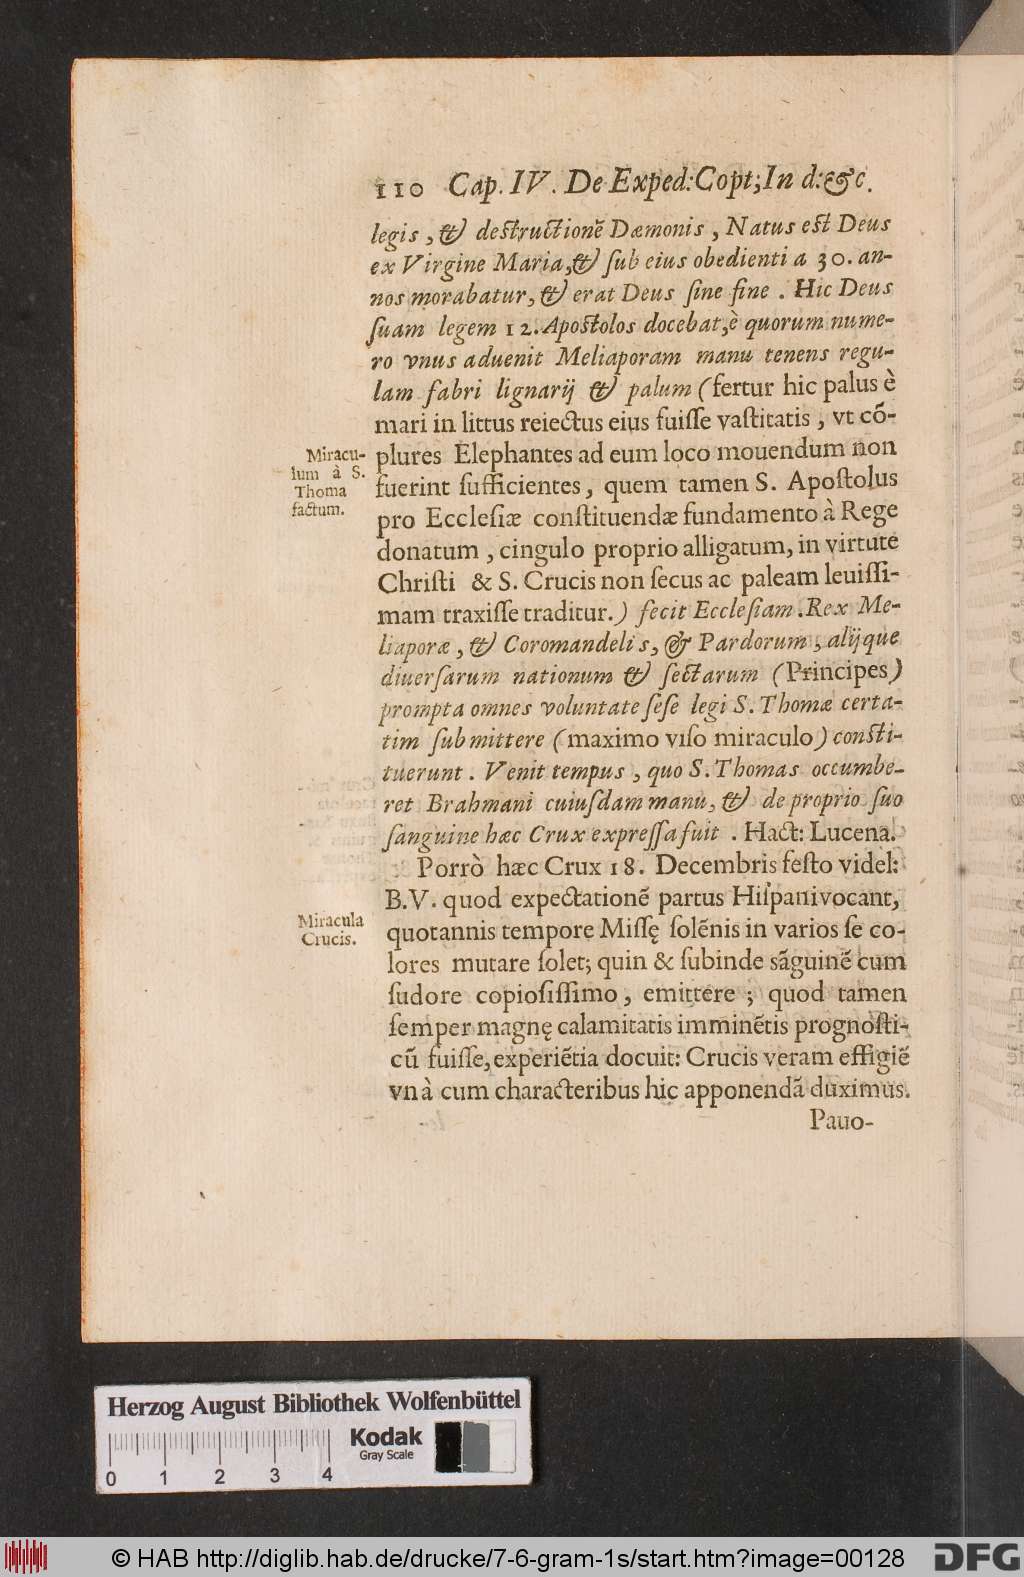 110 Cap. IV. De Exped: Copt; In d: &c.
legis, & destructionẽ Dæmonis, Natus est Deus
ex Virgine Maria, & sub eius obedienti a 30. an-
nos morabatur, & erat Deus sine fine. Hic Deus
suam legem 12. Apostolos docebat, è quorum nume-
ro vnus aduenit Meliaporam manu tenens regu-
lam fabri lignarij & palum (fertur hic palus è
mari in littus reiectus eius fuisse vastitatis, vt cõ-
plures Elephantes ad eum loco mouendum non
fuerint sufficientes, quem tamen S. Apostolus
pro Ecclesiæ constituendæ fundamento à Rege
donatum, cingulo proprio alligatum, in virtute
Christi & S. Crucis non secus ac paleam leuissi-
mam traxisse traditur.) fecit Ecclesiam. Rex Me-
liaporæ, & Coromandelis, & Pardorum, alijque
diuersarum nationum & sectarum (Principes)
prompta omnes voluntate sese legi S. Thomæ certa-
tim submittere (maximo viso miraculo) consti-
tuerunt. Venit tempus, quo S. Thomas occumbe-
ret Brahmani cuiusdam manu, & de proprio suo
sanguine hæc Crux expressa fuit. Hact: Lucena.
Miracu-
lum à S.
Thoma
factum.
Porrò hæc Crux 18. Decembris festo videl:
B.V. quod expectationẽ partus Hispani vocant,
quotannis tempore Missę solẽnis in varios se co-
lores mutare solet; quin & subinde sãguinẽ cum
sudore copiosissimo, emittere; quod tamen
semper magnę calamitatis imminẽtis prognosti-
cũ fuisse, experiẽtia docuit: Crucis veram effigiẽ
vnà cum characteribus hic apponendã duximus.
Miracula
Crucis.
Pauo-
Herzog August Bibliothek Wolfenbüttel
Kodak
Gray Scale
0 1 2 3 4
© HAB http://diglib.hab.de/drucke/7-6-gram-1s/start.htm?image=00128
DFG